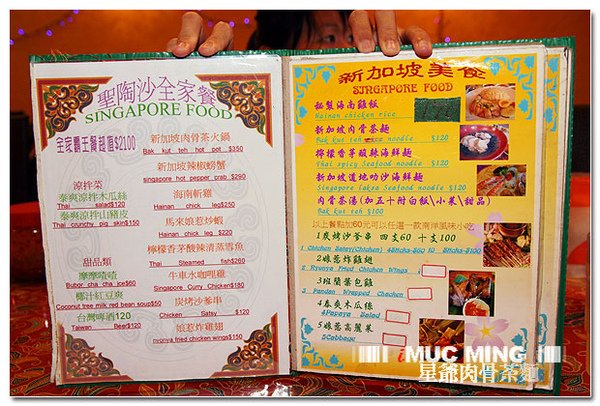 聖陶沙全家餐
SINGAPORE FOOD
全家霸王餐超值$2100
新加坡肉骨茶火鍋
Bak kut teh hot pot $350
新加坡辣椒螃蟹
singapore hot pepper crab $290
涼拌菜
泰興涼拌木瓜絲
Thai salad$120
泰興涼拌山豬皮
Thai crunchy pig skin$150
海南斬雞
Hainan chick leg$250
馬來娘惹炒蝦
Hainan chick leg $220
檸檬香茅酸辣清蒸雪魚
Thai Steamed fish$260
甜品類
摩摩喳喳
Bubor cha cha ice$60
椰汁紅豆爽
Coconut tree milk red bean soup$50
台灣啤酒120
Taiwan Beer$120
牛車水咖哩雞
Singapore Curry Chicken$180
炭烤沙爹串
Chicken Satsy $120
娘惹炸雞翅
nyonya fried chicken wings$150
新加坡美食
SINGAPORE FOOD
秘製海南雞飯
Hainan chicken rice
新加坡肉骨茶麵
Bak kut teh rice noodle $120
檸檬香茅酸辣海鮮麵
Thai spicy Seafood noodle $120
新加坡道地叻沙海鮮麵
Singapore laksa Seafood noodle $120
肉骨茶湯(加五十附白飯\小菜\甜品)
Bak kut teh $100
以上餐點加60元可以任選一款南洋風味小吃
1炭烤沙爹串 四支60 十支100
1 Chicken Satay(Chicken) 4Sticks-$60 10 Sticks-$100
2娘惹炸雞翅
2 Nyonya Fried Chicken Wings
3班蘭葉包雞
3 Pandan Wrapped Chechen
4春爽木瓜絲
4Papaya Salad
5娘惹高麗菜
5Cabbage
MUC MING
星爺肉骨茶麵